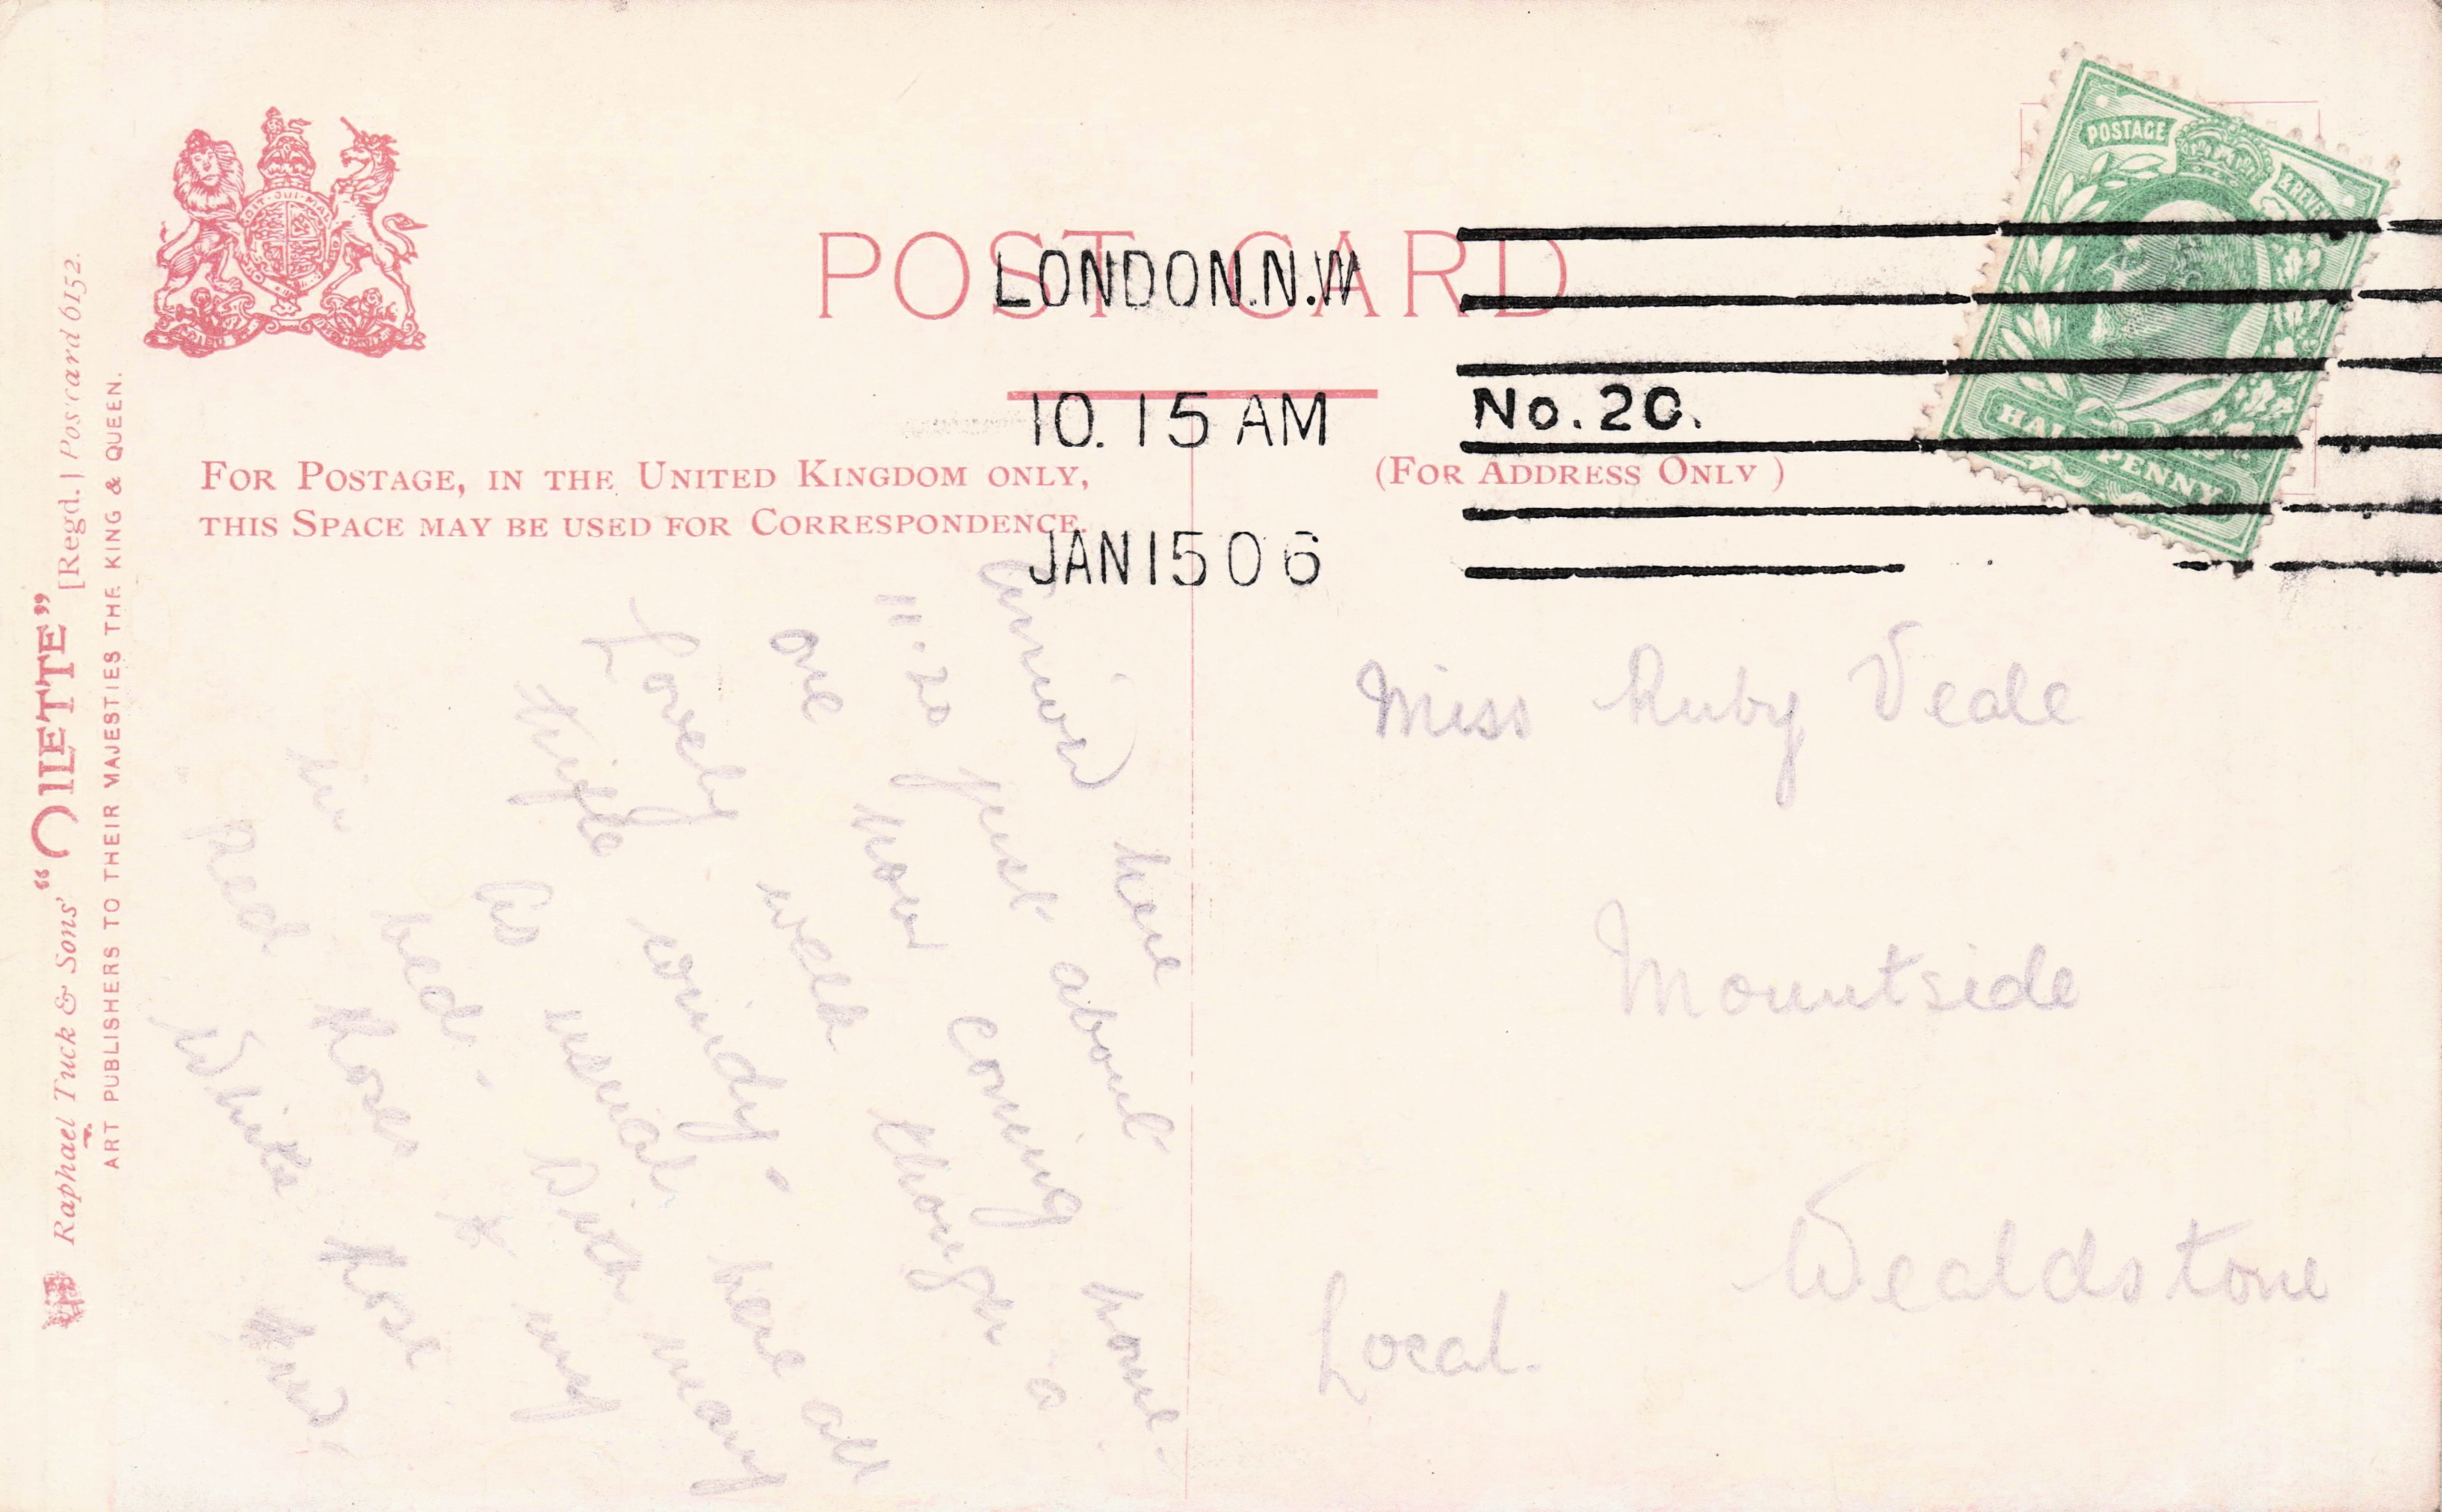 POST CARD
LONDON.N.W
10.15 AM
JAN 15 06
No. 20.
POSTAGE & REVENUE
HALFPENNY
FOR POSTAGE, IN THE UNITED KINGDOM ONLY,
THIS SPACE MAY BE USED FOR CORRESPONDENCE.
(FOR ADDRESS ONLY)
Raphael Tuck & Sons' "OILETTE" [Regd.] Postcard 6152.
ART PUBLISHERS TO THEIR MAJESTIES THE KING & QUEEN.
Arrived here
11.20 just about
one hour coming home.
Lovely walk though a
trifle windy.
As usual here all
in bed. With many
Red Roses & my
White Rose
Miss Ruby Veale
Mountside
Wealdstone
Local.